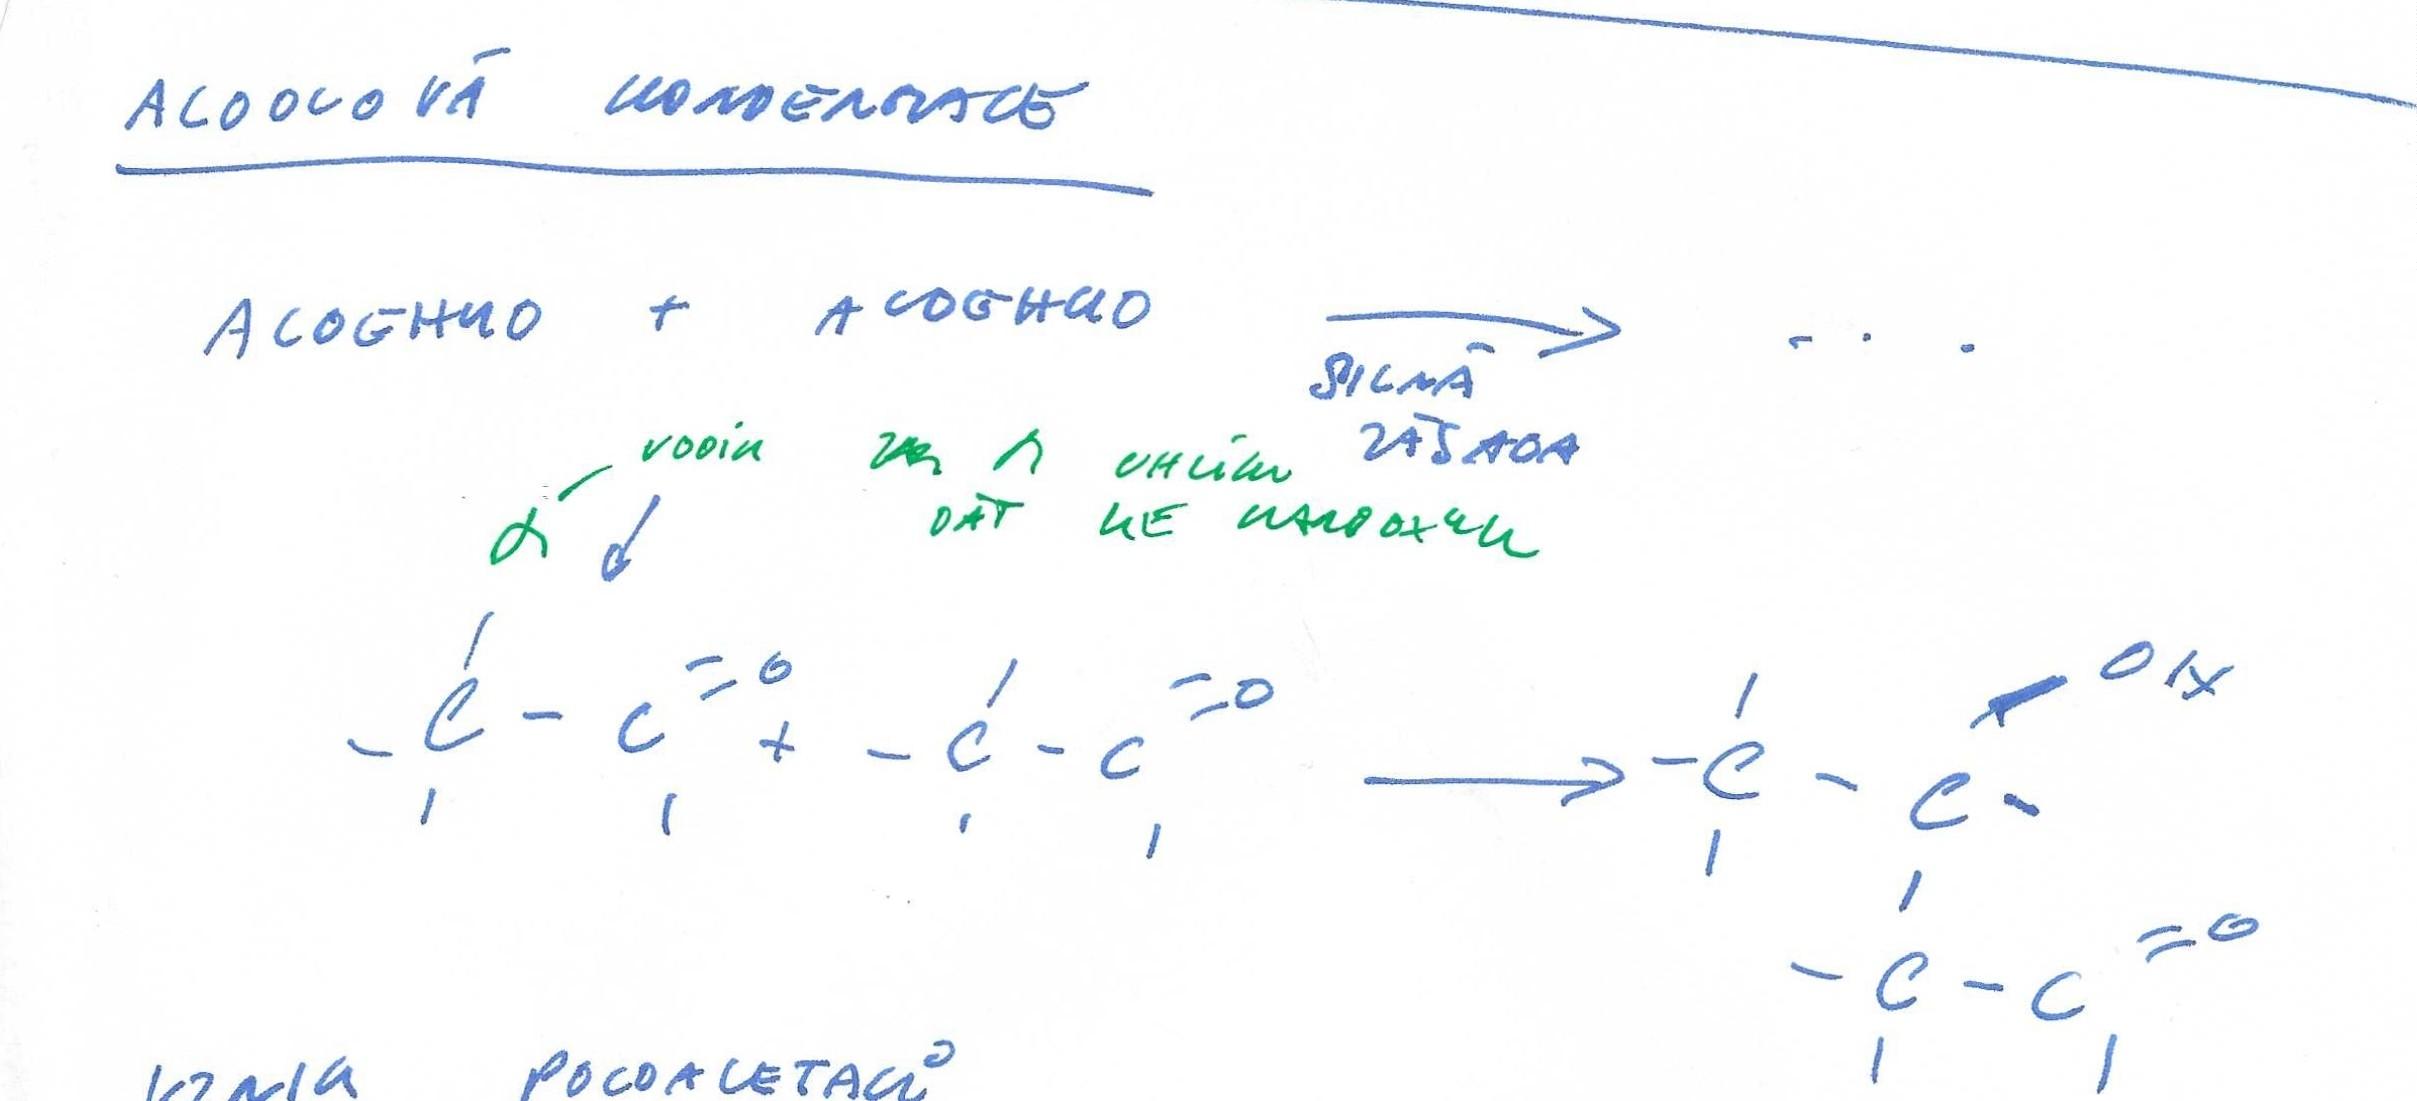 ALDOLOVÁ KONDENZACE
ALDEHYD + ALDEHYD → . . .
SILNÁ
ZÁSADA
VODÍK Z α UHLÍKU
DÁT KE KARBOXYLU
α
- C - C = O + - C - C = O → - C - C - OH
- C - C = O
VZNIK POLOACETALŮ